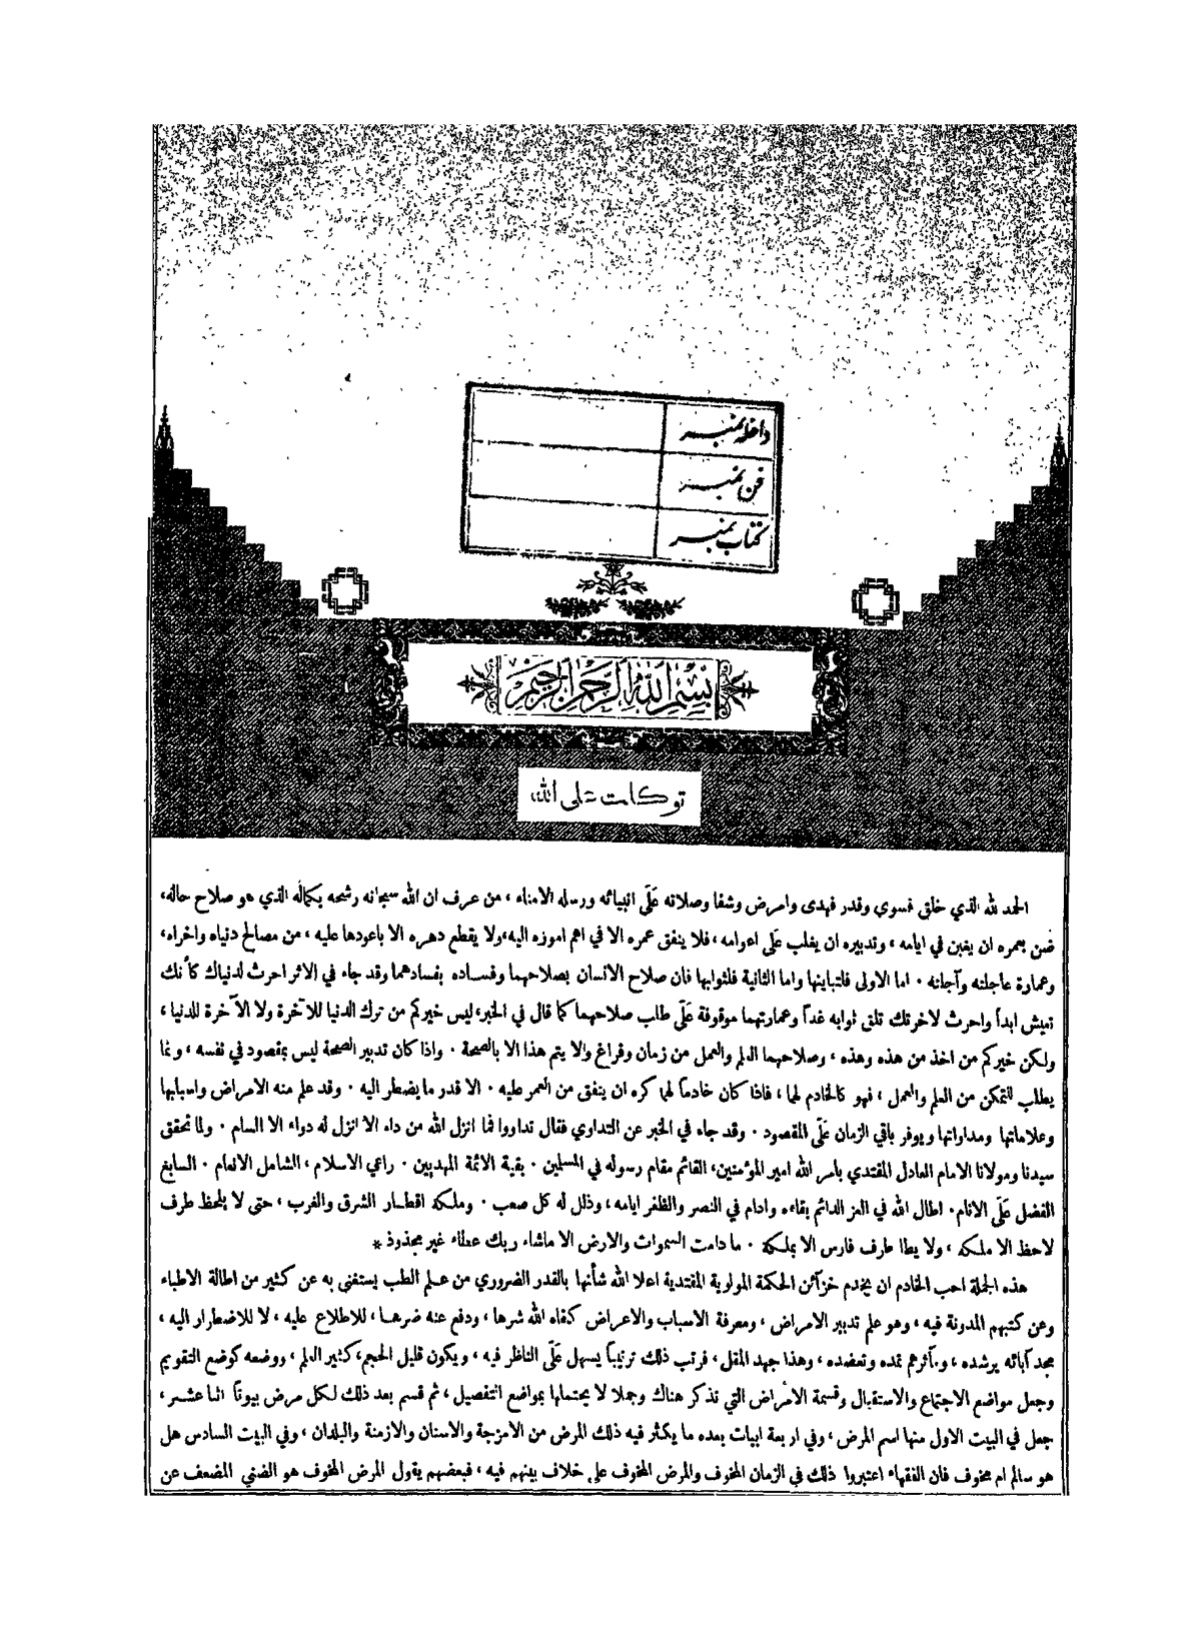 داخله نمبر
فن نمبر
كتاب نمبر
بسم الله الرحمن الرحيم
توكلت على الله
الحمد لله الذي خلق فسوى وقدر فهدى وامرض وشفا وصلاته عَلَى انبيائه ورسله الامناء ، من عرف ان الله سبحانه رشحه بكماله الذي هو صلاح حاله،
ضن بعمره ان يغبن في ايامه ، وتدبيره ان يغلب عَلَى اعوامه ،فلا ينفق عمره الا في اهم اموره اليه،ولا يقطع دهره الا باعودها عليه ، من مصالح دنياه واخراه،
وعمارة عاجلته وآجلته ٠ اما الاولى فلتباينها واما الثانية فلثوابها فان صلاح الانسان بصلاحهما وفساده بفسادهما وقد جاء في الاثر احرث لدنياك كأنك
تعيش ابداً واحرث لاخرتك تلق ثوابه غداً وعمارتهما موقوفة عَلَى طلب صلاحهما كما قال في الخبر،ليس خيركم من ترك الدنيا للآخرة ولا الآخرة للدنيا ،
ولكن خيركم من اخذ من هذه وهذه ، وصلاحهما العلم والعمل من زمان وفراغ والا يتم هذا الا بالصحة ٠ واذا كان تدبير الصحة ليس بمقصود في نفسه ، وانما
يطلب للتمكن من العلم والعمل ، فهو كالخادم لهما ، فاذا كان خادماً لهما كره ان ينفق من العمر عليه ٠ الا قدر ما يضطر اليه ٠ وقد علم منه الامراض واسبابها
وعلاماتها ومداواتها ويوفر باقي الزمان عَلَى المقصود ٠ وقد جاء في الخبر عن التداوي فقال تداووا فما انزل الله من داء الا انزل له دواء الا السام ٠ ولما تحقق
سيدنا ومولانا الامام العادل المقتدي بأمر الله امير المؤمنين، القائم مقام رسوله في المسلمين ٠ بقية الائمة المهديين ٠ راعي الاسلام ، الشامل الانعام ٠ السابغ
الفضل عَلَى الانام٠ اطال الله في العز الدائم بقاءه وادام في النصر والظفر ايامه ، وذلل له كل صعب ٠ وملكه اقطار الشرق والغرب ، حتى لا يلحظ طرف
لاحظ الا ملكه ، ولا يطا طرف فارس الا بملكه ٠ ما دامت السموات والارض الا ماشاء ربك عطاء غير مجذوذ *
هذه الجملة احب الخادم ان يخدم خزائن الحكمة المولوية المقتدية اعلا الله شأنها بالقدر الضروري من علم الطب يستغنى به عن كثير من اطالة الاطباء
وعن كتبهم المدونة فيه ، وهو علم تدبير الامراض ، ومعرفة الاسباب والاعراض كفاه الله شرها ، ودفع عنه ضرها ، للاطلاع عليه ، لا للاضطرار اليه ،
مجد آبائه يرشده ، ومآثرهم تمده وتعضده ، وهذا جهد المقل ، فرتب ذلك ترتيباً يسهل عَلَى الناظر فيه ، ويكون قليل الحجم،كثير العلم ، ووضعه كوضع التقويم
وجعل مواضع الاجتماع والاستقبال وقسمة الامراض التي تذكر هناك وجملا لا يحتملها بمواضع التفصيل ، ثم قسم بعد ذلك لكل مرض بيوتاً اثنا عشر ،
جعل في البيت الاول منها اسم المرض ، وفي اربعة ابيات بعده ما يكثر فيه ذلك المرض من الامزجة والاسنان والازمنة والبلدان ، وفي البيت السادس هل
هو سالم ام مخوف فان الفقهاء اعتبروا ذلك في الزمان المخوف والمرض المخوف على خلاف بينهم فيه ، فبعضهم يقول المرض المخوف هو الضني المضعف عن